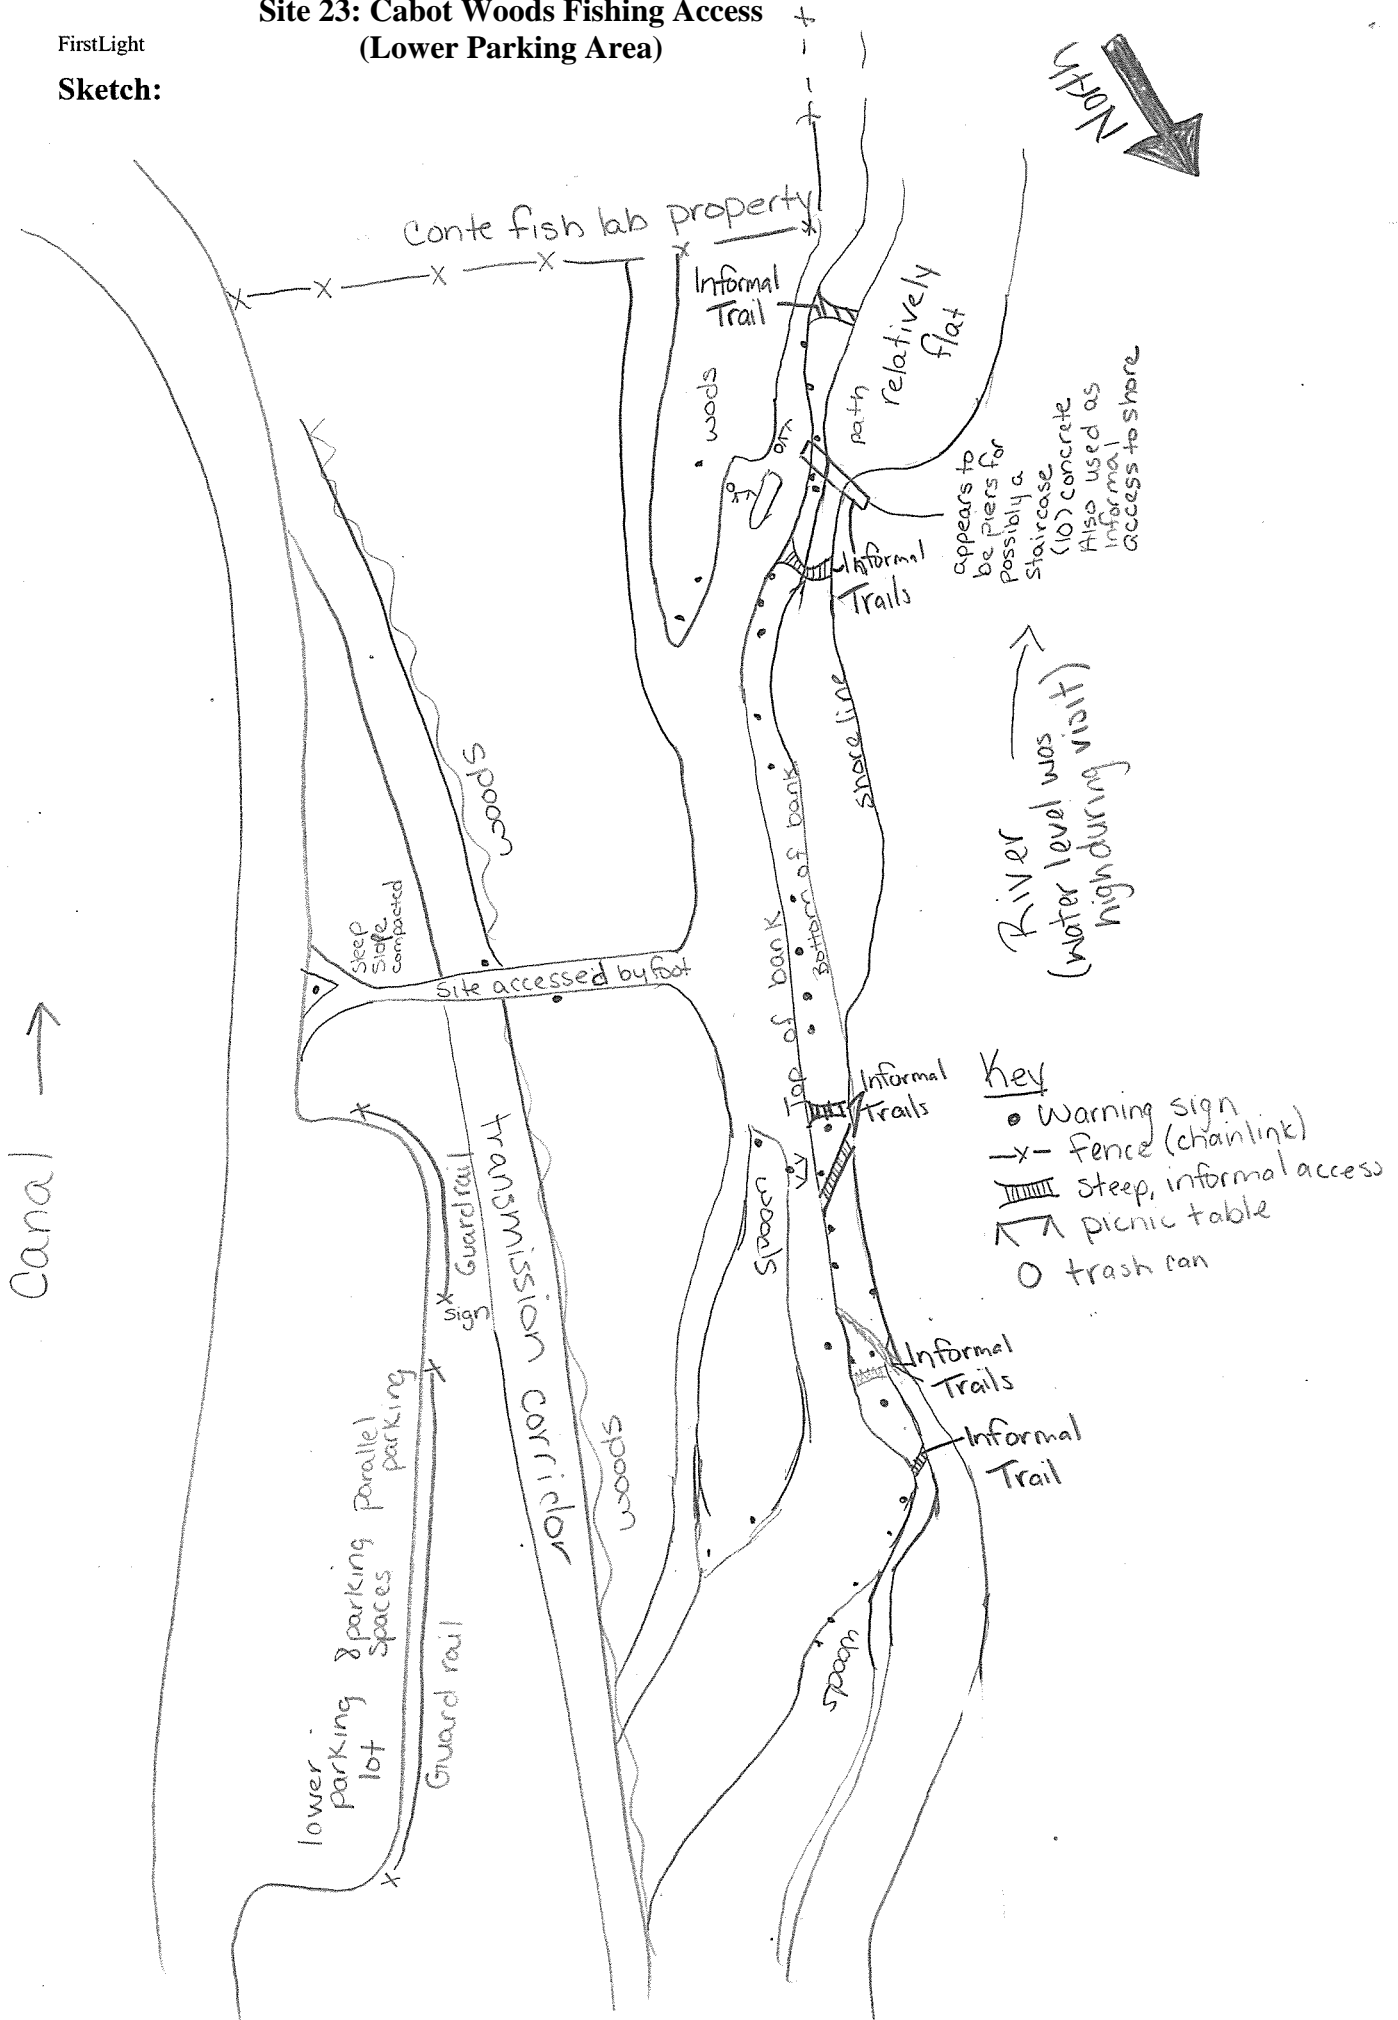 Site 23: Cabot Woods Fishing Access
(Lower Parking Area)
FirstLight
Sketch:
North
Conte fish lab property
Informal
Trail
relatively
flat
woods
path
appears to
be piers for
possibly a
staircase
(10) concrete
Also used as
informal
access to shore
Informal
Trails
shoreline
River
(water level was
high during visit)
woods
Top of bank
Bottom of bank
Steep
Slope
compacted
Site accessed by foot
Canal
Informal
Trails
Key
Warning sign
-x- fence (chainlink)
steep, informal access
picnic table
trash can
Guardrail
Sign
transmission corridor
woods
Informal
Trails
Informal
Trail
woods
lower
parking
lot
8 parking
spaces
parallel
parking
Guard rail
woods